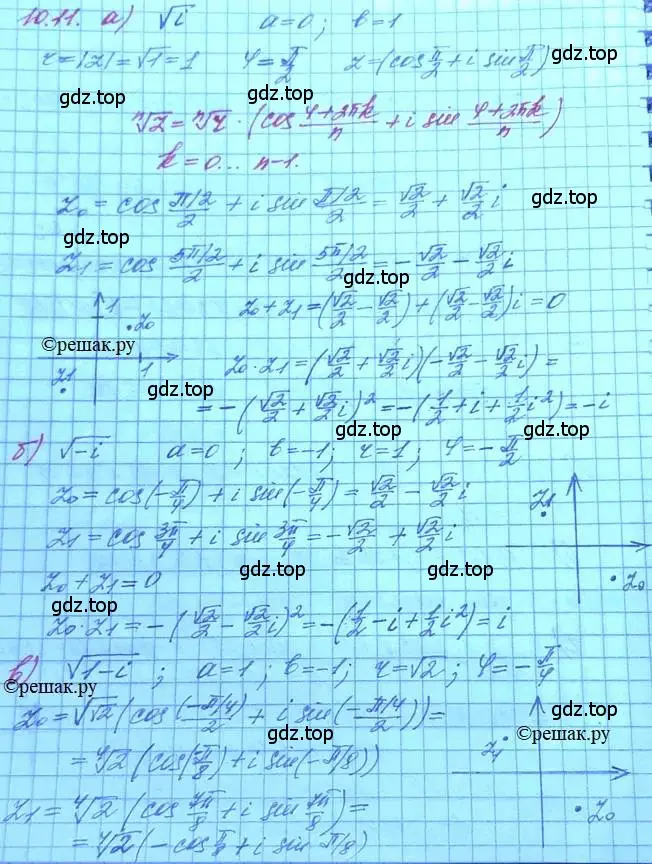 10.11. а) √i   a=0; b=1
r=|z|=√1=1   φ=π/2   z=(cos π/2 + i sin π/2)
gdz.top gdz.top
ⁿ√z = ⁿ√r · (cos (φ+2πk)/n + i sin (φ+2πk)/n)
k=0... n-1.
gdz.top
z₀ = cos (π/2)/2 + i sin (π/2)/2 = √2/2 + √2/2 i
gdz.top gdz.top
z₁ = cos (5π/2)/2 + i sin (5π/2)/2 = -√2/2 - √2/2 i
1 z₀ z₀+z₁ = (√2/2 - √2/2) + (√2/2 - √2/2)i = 0
©решак.ру gdz.top
z₁ 1 z₀·z₁ = (√2/2 + √2/2 i)(-√2/2 - √2/2 i) =
gdz.top
= -(√2/2 + √2/2 i)² = -(1/2 + i + 1/2 i²) = -i
gdz.top
б) √-i   a=0; b=-1; r=1; φ=-π/2
z₀ = cos(-π/4) + i sin(-π/4) = √2/2 - √2/2 i
z₁
gdz.top gdz.top
z₁ = cos 3π/4 + i sin 3π/4 = -√2/2 + √2/2 i
gdz.top
z₀+z₁=0
z₀
gdz.top
z₀·z₁ = -(√2/2 - √2/2 i)² = -(1/2 - i + 1/2 i²) = i
gdz.top
в) √1-i; a=1; b=-1; r=√2; φ=-π/4
©решак.ру gdz.top
z₀ = √√2 (cos (-π/4)/2 + i sin (-π/4)/2)) =
gdz.top gdz.top
©решак.ру
z₁
= ⁴√2 (cos(-π/8) + i sin(-π/8))
gdz.top
z₁ = ⁴√2 (cos 7π/8 + i sin 7π/8) =
z₀
gdz.top gdz.top
= ⁴√2 (-cos π/8 + i sin π/8)